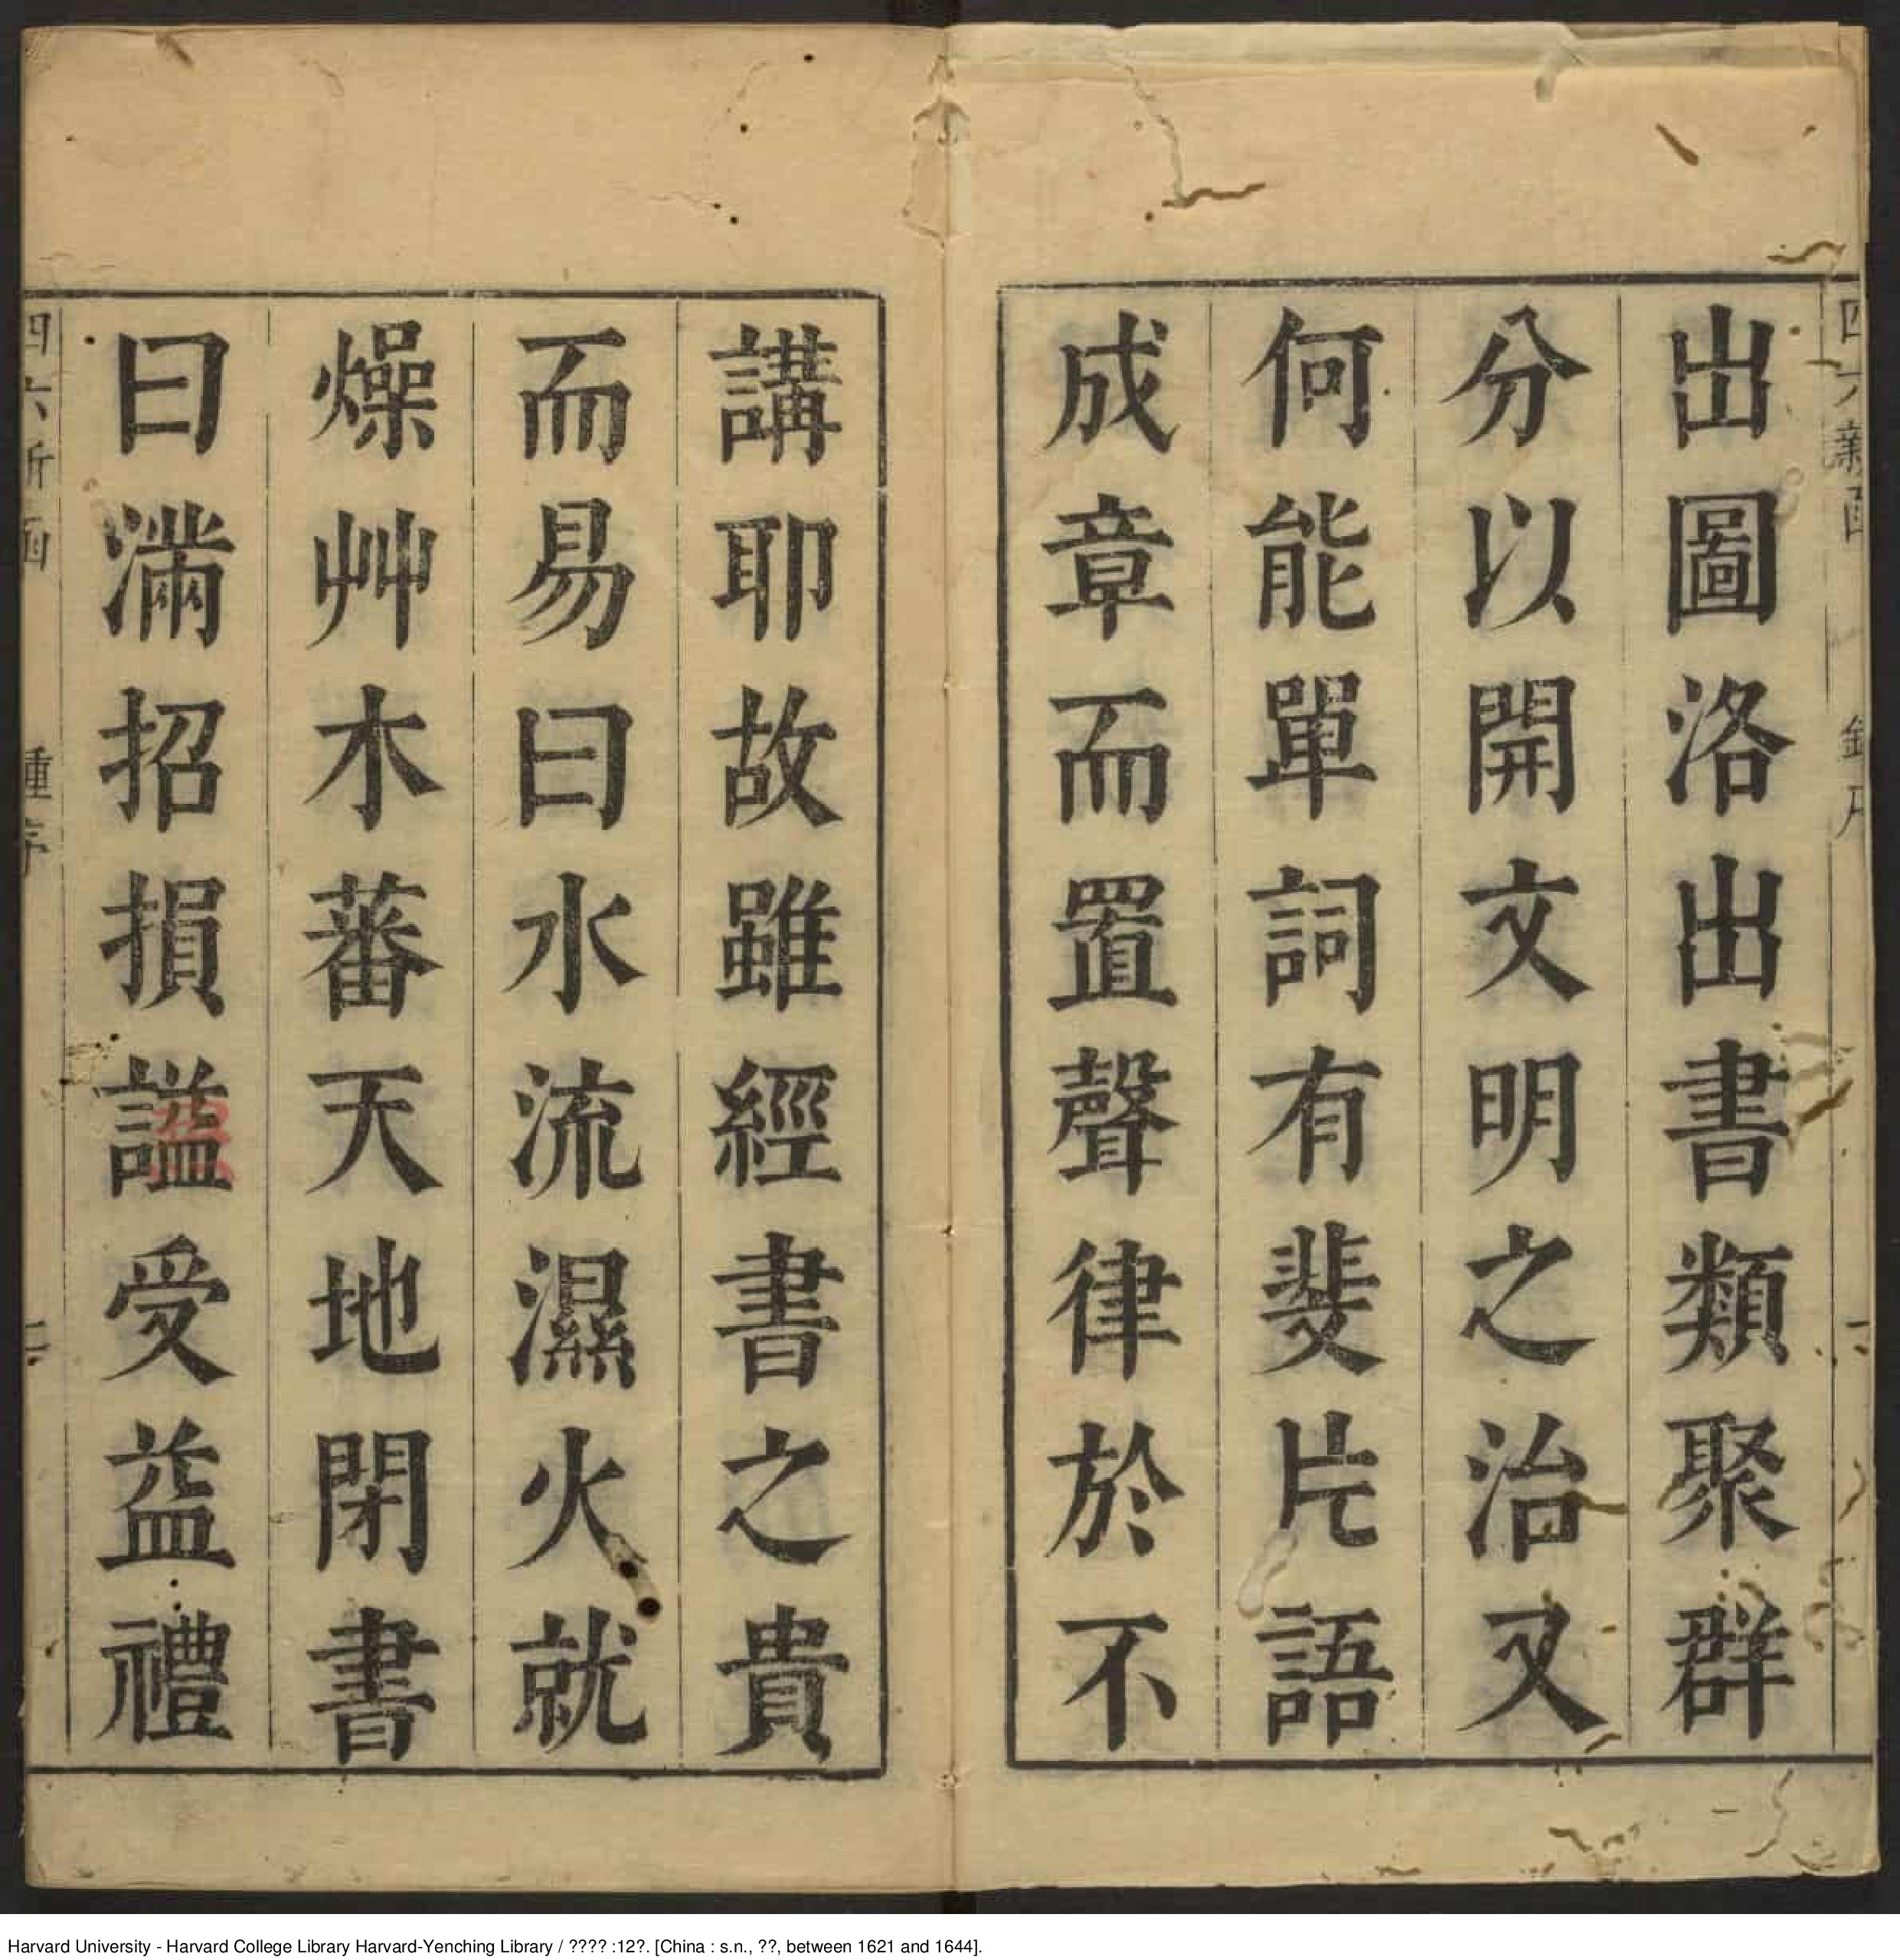 出圖洛出書類聚群
分以開文明之治又
何能單詞有斐片語
成章而置聲律於不
講耶故雖經書之貴
而易曰水流濕火就
燥艸木蕃天地閉書
曰滿招損謚受益禮
四六新函
鍾序
二
Harvard University - Harvard College Library Harvard-Yenching Library / ???? :12?. [China : s.n., ??, between 1621 and 1644].